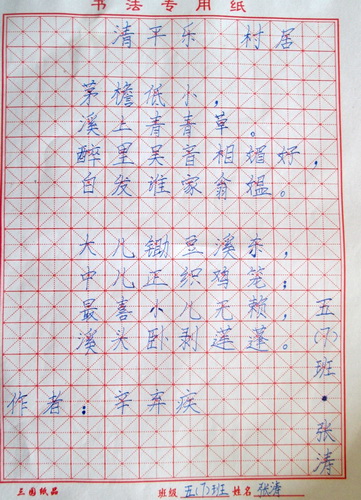 书法专用纸
清平乐 村居
茅檐低小，
溪上青青草。
醉里吴音相媚好，
白发谁家翁媪。
大儿锄豆溪东，
中儿正织鸡笼；
最喜小儿无赖，
溪头卧剥莲蓬。
作者：辛弃疾
五(7)班·张涛
三国纸品 班级 五(7)班 姓名 张涛